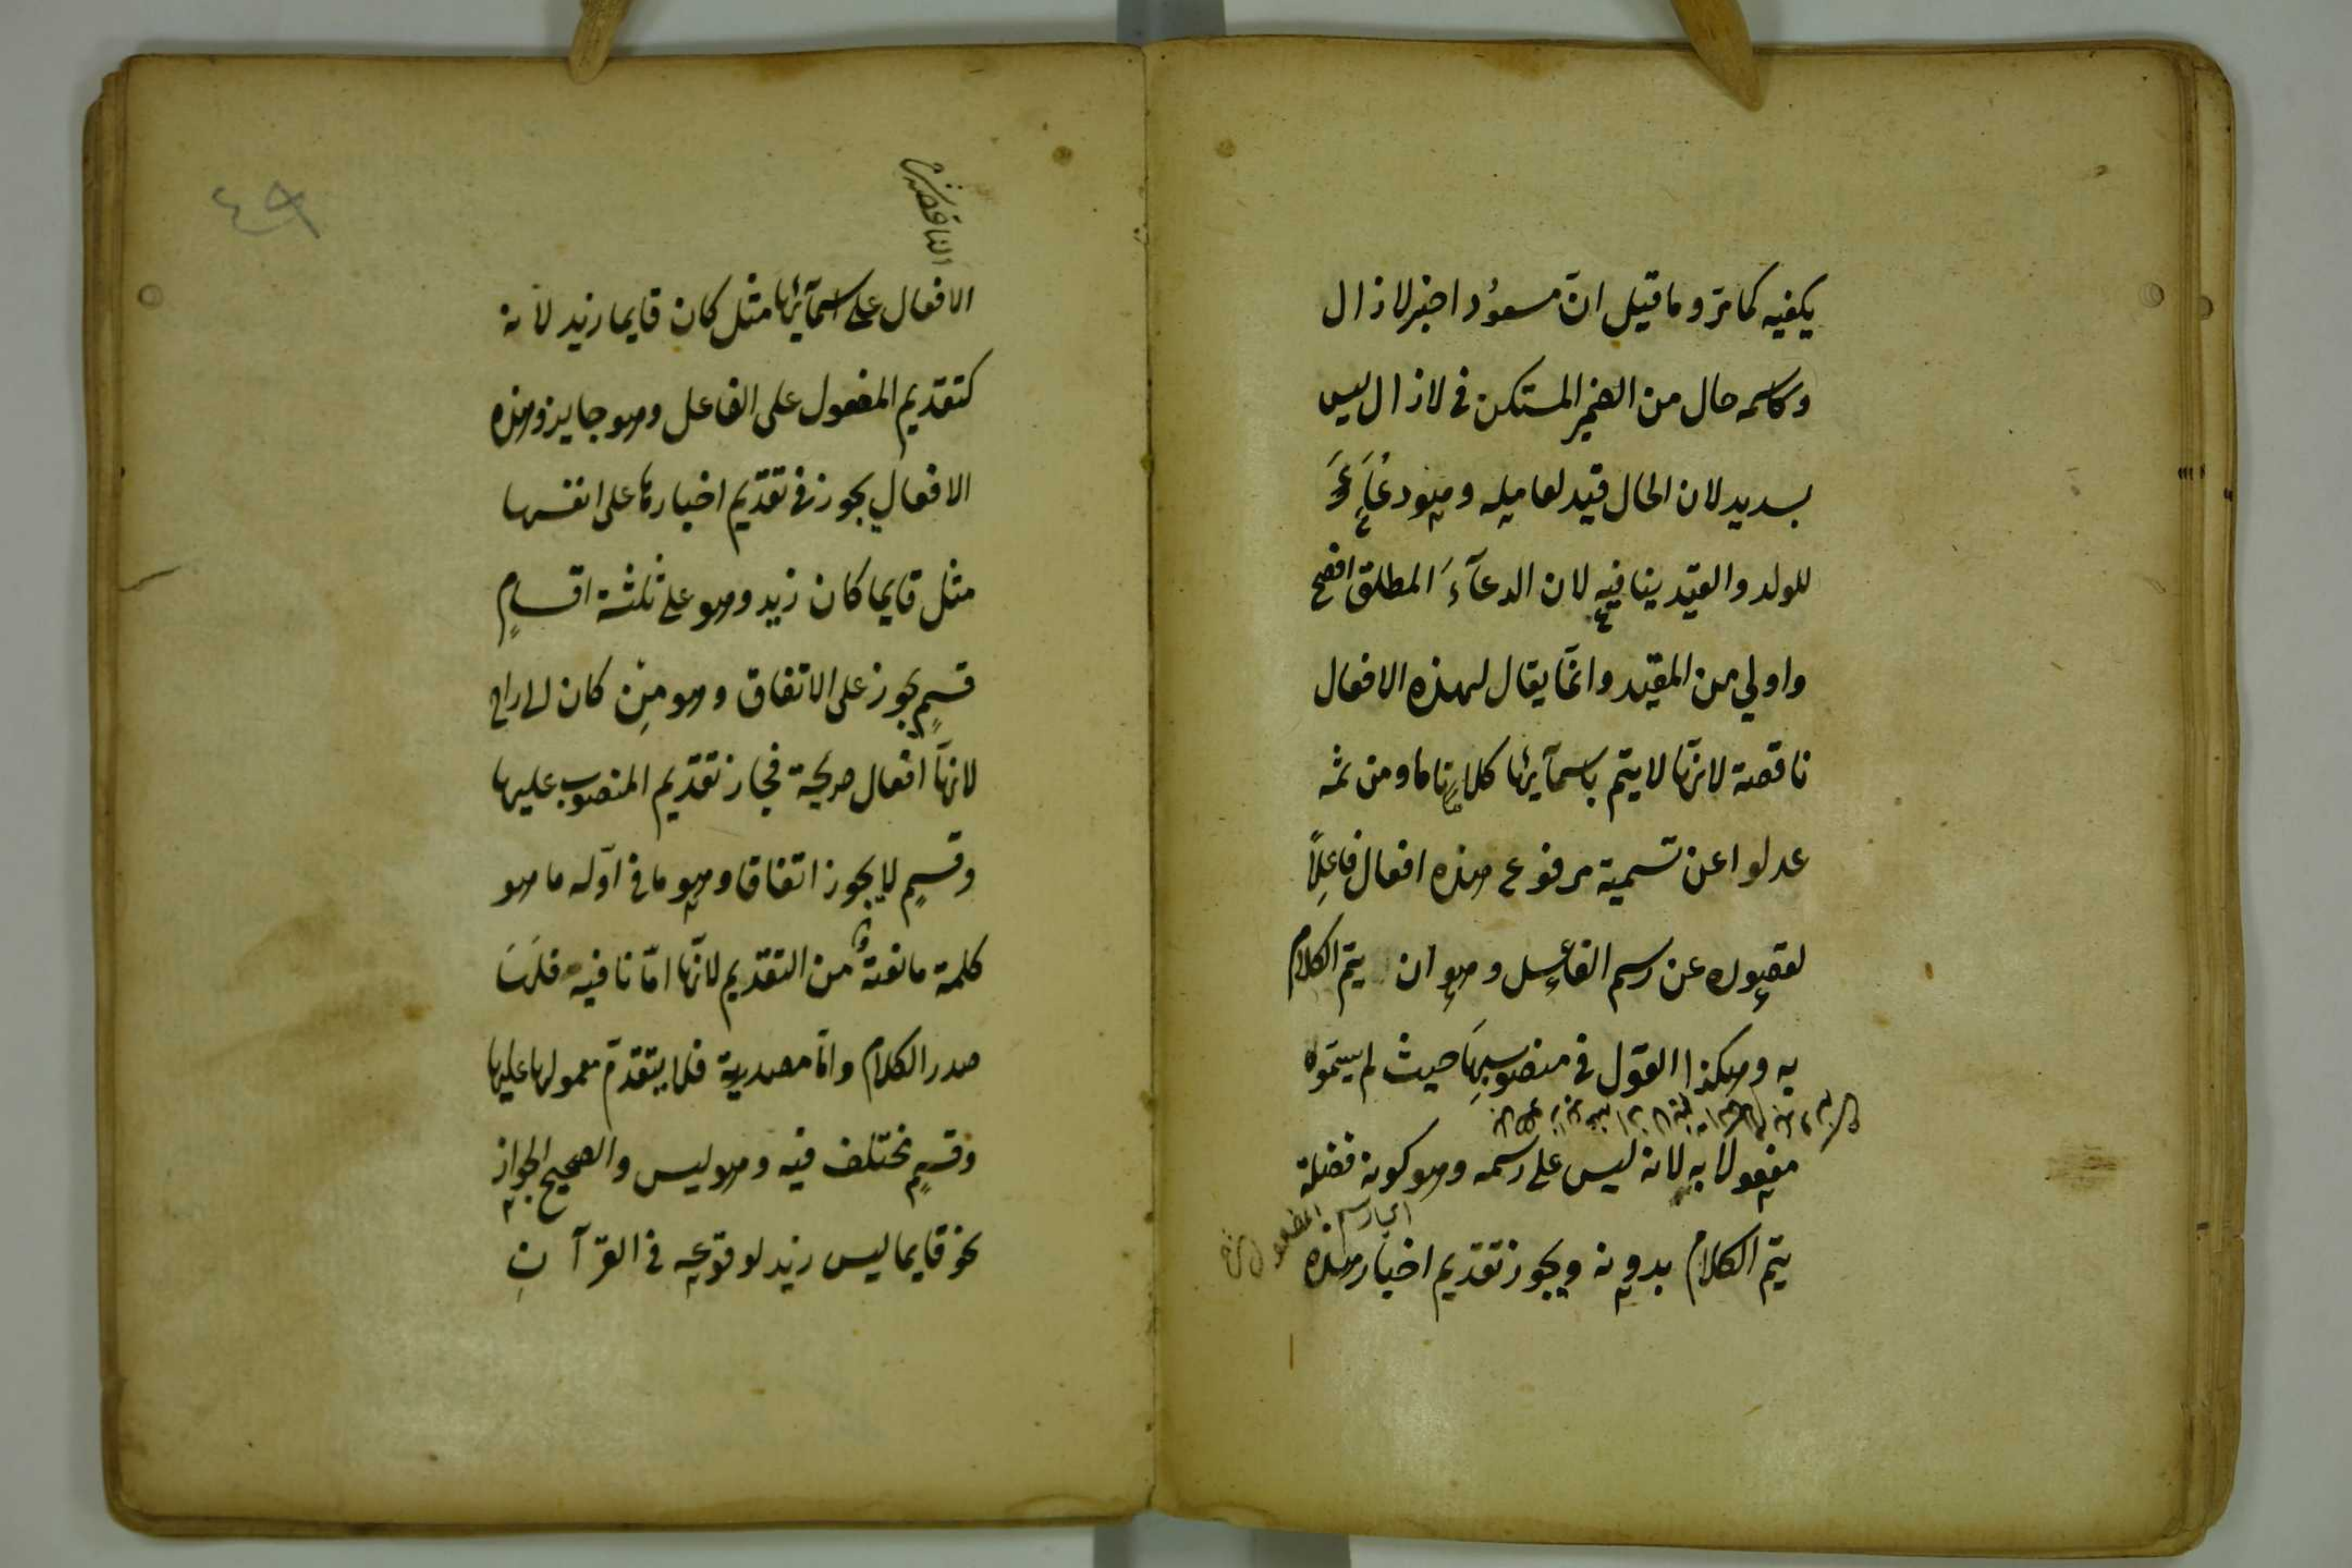 يكفيه كما مرّ وما قيل انّ مسعوُد اخبر لازال
وكاسمه حال من الضمير المستكن فى لازال ليس
بسديد لان الحال قيد لعامله وهو دعُآءَ
للولد والقيد ينافيه لان الدعآءَ المطلق افصح
واولي من المقيد وانّما يقال لهذه الافعال
ناقصة لانهّا لا يتم باسمآئها كلام تاما ومن ثمه
عدلوا عن تسمية مرفوع هذه افعال فاعِلاً
لقصوره عن رسم الفاعل وهو ان يتم الكلام
به وهكذا القول فى منصوبهَا حيث لم يسمّوه
مفعولا به لانه ليس على رسمه وهو كونه فضلة
يتم الكلام بدونه ويجوز تقديم اخبار هذه
الناقصة
الافعال على اسمآئها مثل كان قايما زيد لانه
كتقديم المفعول على الفاعل وهو جايز وهذه
الافعال يجوز فى تقديم اخبارها على انفسها
مثل قايما كان زيد وهو على ثلثة اقسامٍ
قسمٍ يجوز على الاتفاق وهو مِن كان الى راح
لانهّا افعال صريحة فجاز تقديم المنصوب عليها
وقسمٍ لا يجوز اتفاقا وهو ما فى اوّله ما هو
كلمة مانعةٌ من التقديم لانهّا امّا نافيه فلهَا
صدر الكلام وامّا مصدرية فلا يتقدّم معمولها عليها
وقسمٍ مختلف فيه وهو ليس والصحيح الجواز
نحو قايما ليس زيد لوقوعه فى القرآنِ